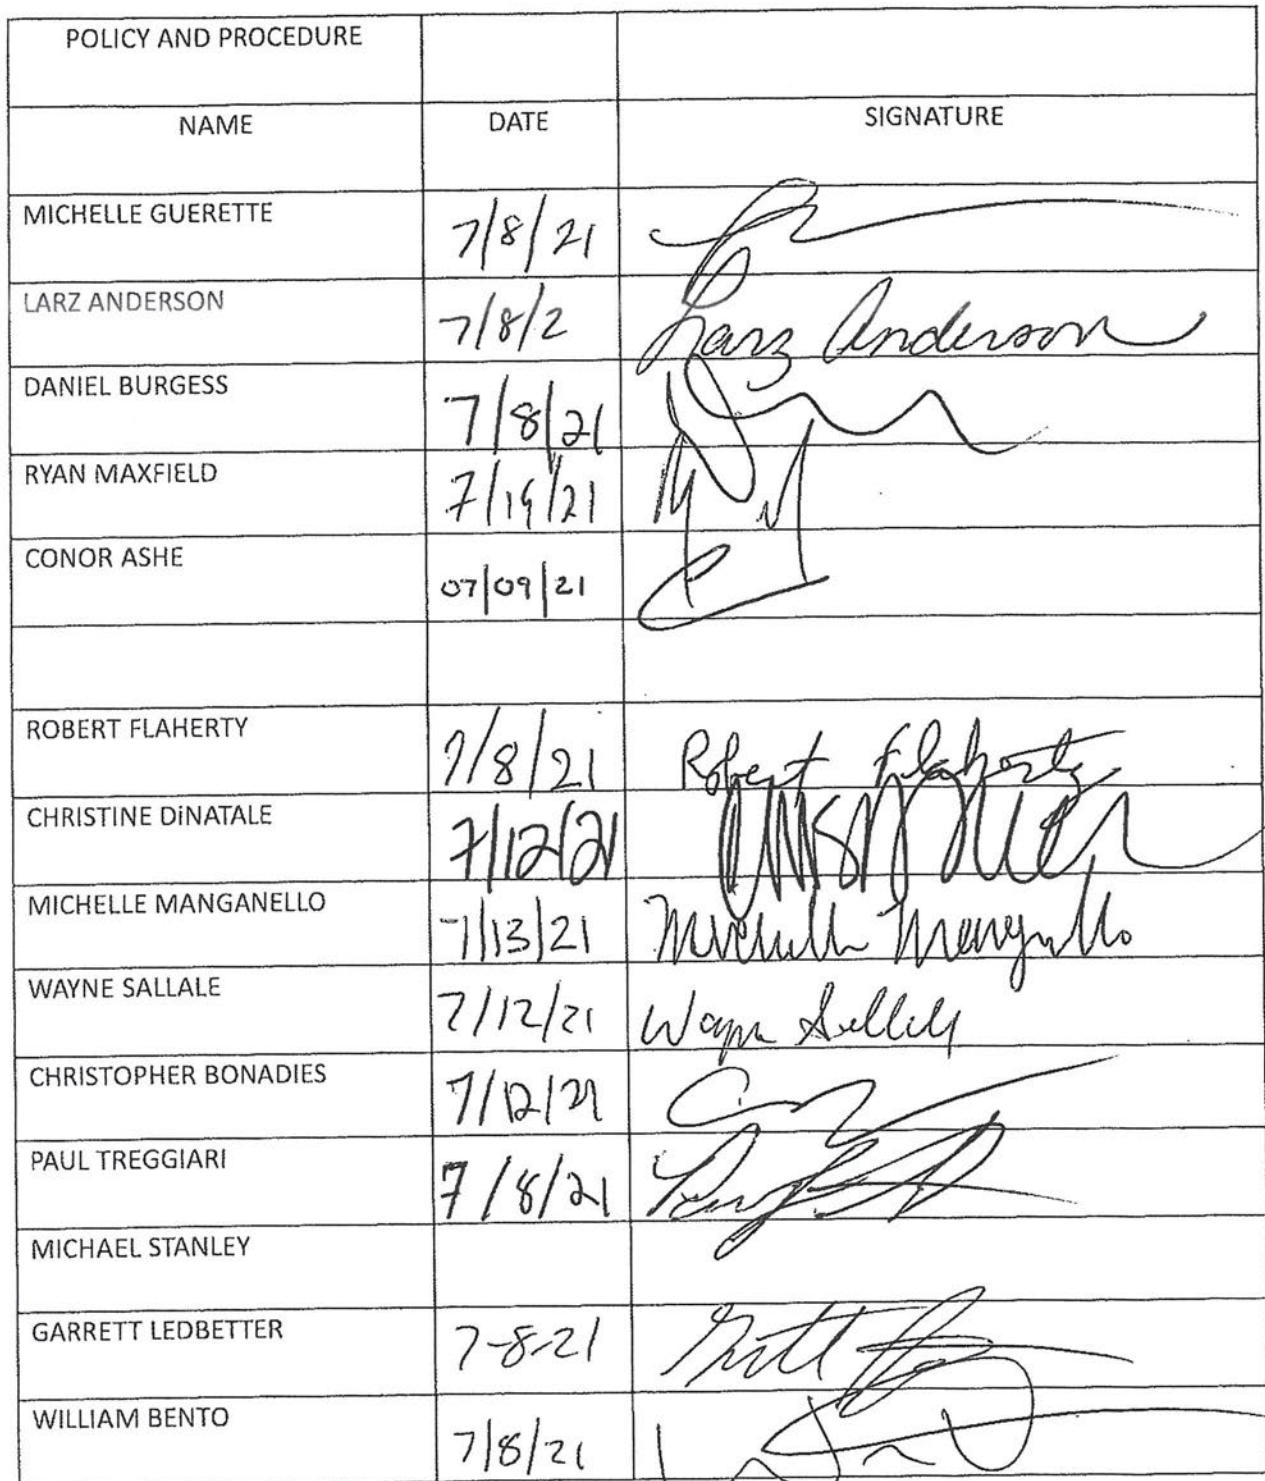 POLICY AND PROCEDURE
NAME DATE SIGNATURE
MICHELLE GUERETTE 7/8/21
LARZ ANDERSON 7/8/2 Larz Anderson
DANIEL BURGESS 7/8/21
RYAN MAXFIELD 7/19/21
CONOR ASHE 07/09/21
ROBERT FLAHERTY 7/8/21 Robert Flaherty
CHRISTINE DiNATALE 7/12/21
MICHELLE MANGANELLO 7/13/21 Michelle Manganello
WAYNE SALLALE 7/12/21 Wayne Sallale
CHRISTOPHER BONADIES 7/12/21
PAUL TREGGIARI 7/8/21
MICHAEL STANLEY
GARRETT LEDBETTER 7-8-21
WILLIAM BENTO 7/8/21